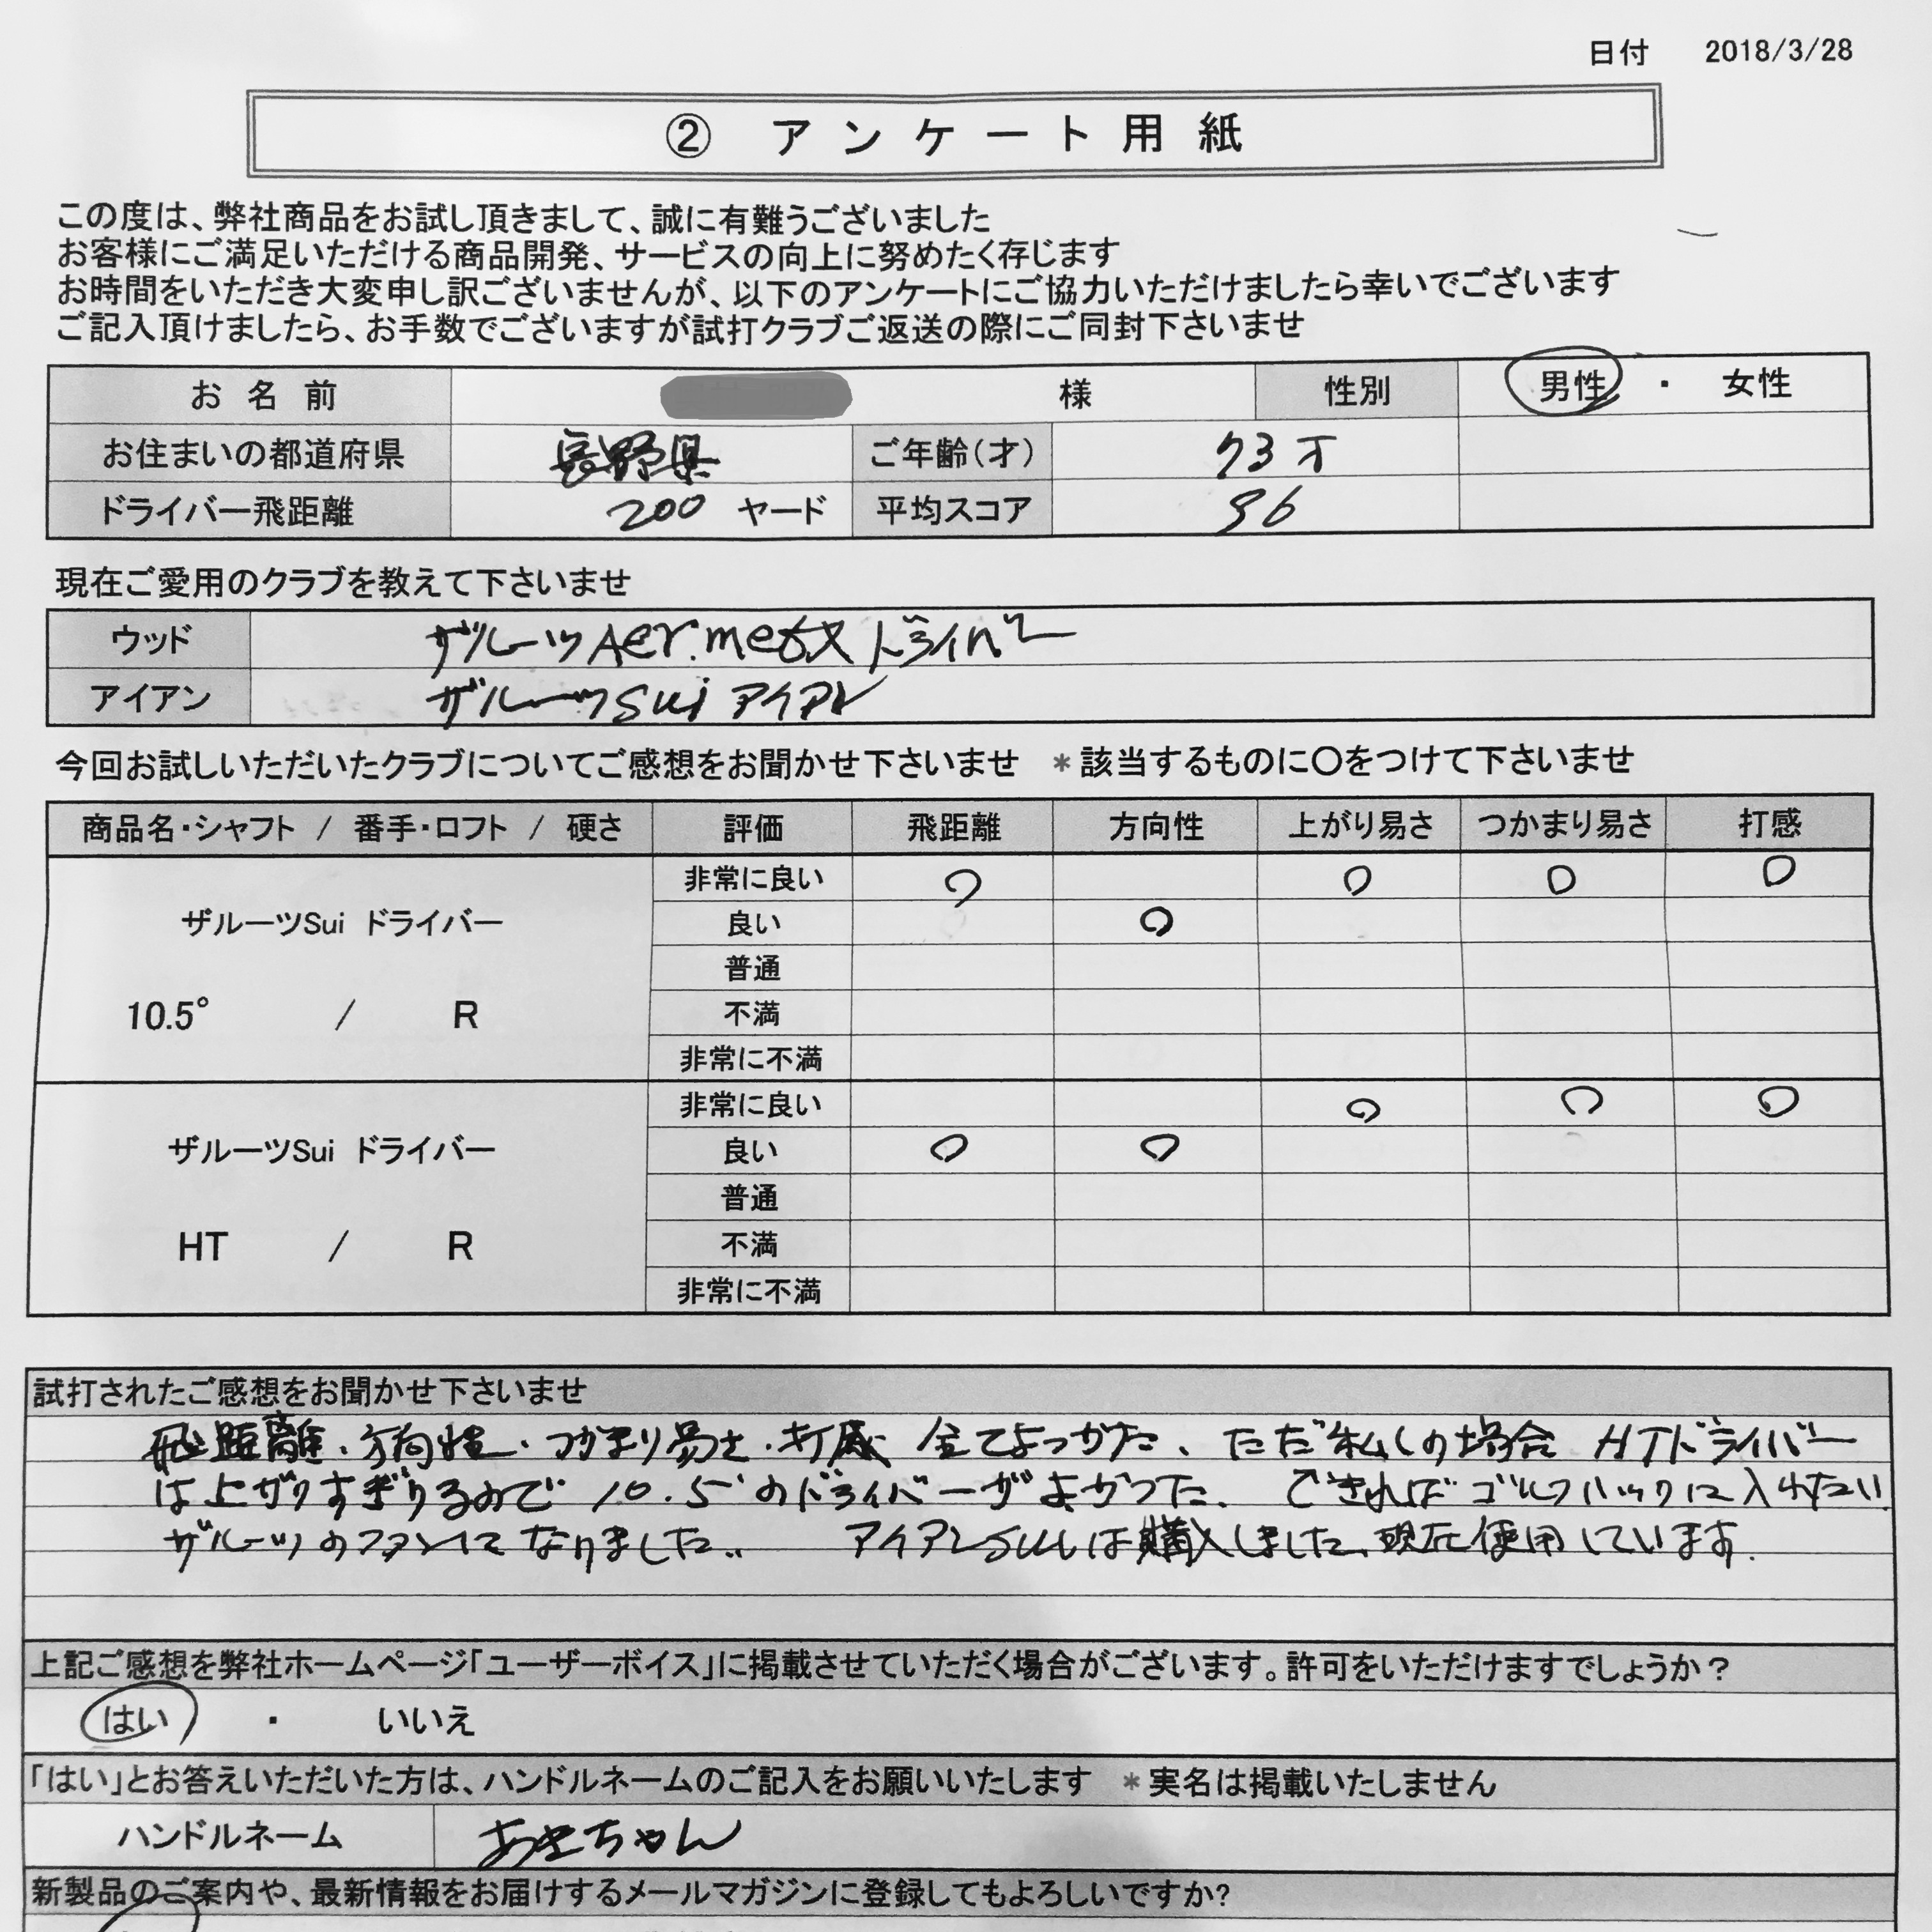 日付 2018/3/28
② アンケート用紙
この度は、弊社商品をお試し頂きまして、誠に有難うございました
お客様にご満足いただける商品開発、サービスの向上に努めたく存じます
お時間をいただき大変申し訳ございませんが、以下のアンケートにご協力いただけましたら幸いでございます
ご記入頂けましたら、お手数でございますが試打クラブご返送の際にご同封下さいませ
お名前 様 性別 男性 ・ 女性
お住まいの都道府県 長野県 ご年齢(才) 73才
ドライバー飛距離 200 ヤード 平均スコア
現在ご愛用のクラブを教えて下さいませ
ウッド ザルーツ ドライバー
アイアン ザルーツSui アイアン
今回お試しいただいたクラブについてご感想をお聞かせ下さいませ *該当するものに〇をつけて下さいませ
商品名・シャフト / 番手・ロフト / 硬さ 評価 飛距離 方向性 上がり易さ つかまり易さ 打感
非常に良い 〇 〇 〇 〇
ザルーツSui ドライバー 良い 〇
普通
10.5° / R 不満
非常に不満
非常に良い 〇 〇 〇
ザルーツSui ドライバー 良い 〇 〇
普通
HT / R 不満
非常に不満
試打されたご感想をお聞かせ下さいませ
飛距離、方向性、つかまり易さ、打感 全てよっかた、ただ私しの場合 HTドライバー
は上がりすぎりるので 10.5°のドライバーがよかつた. できればゴルフバックに入れたい
ザルーツのファンになりました.. アイアンSuiは購入しました、現在使用しています.
上記ご感想を弊社ホームページ「ユーザーボイス」に掲載させていただく場合がございます。許可をいただけますでしょうか?
はい ・ いいえ
「はい」とお答えいただいた方は、ハンドルネームのご記入をお願いいたします *実名は掲載いたしません
ハンドルネーム あきちゃん
新製品のご案内や、最新情報をお届けするメールマガジンに登録してもよろしいですか?